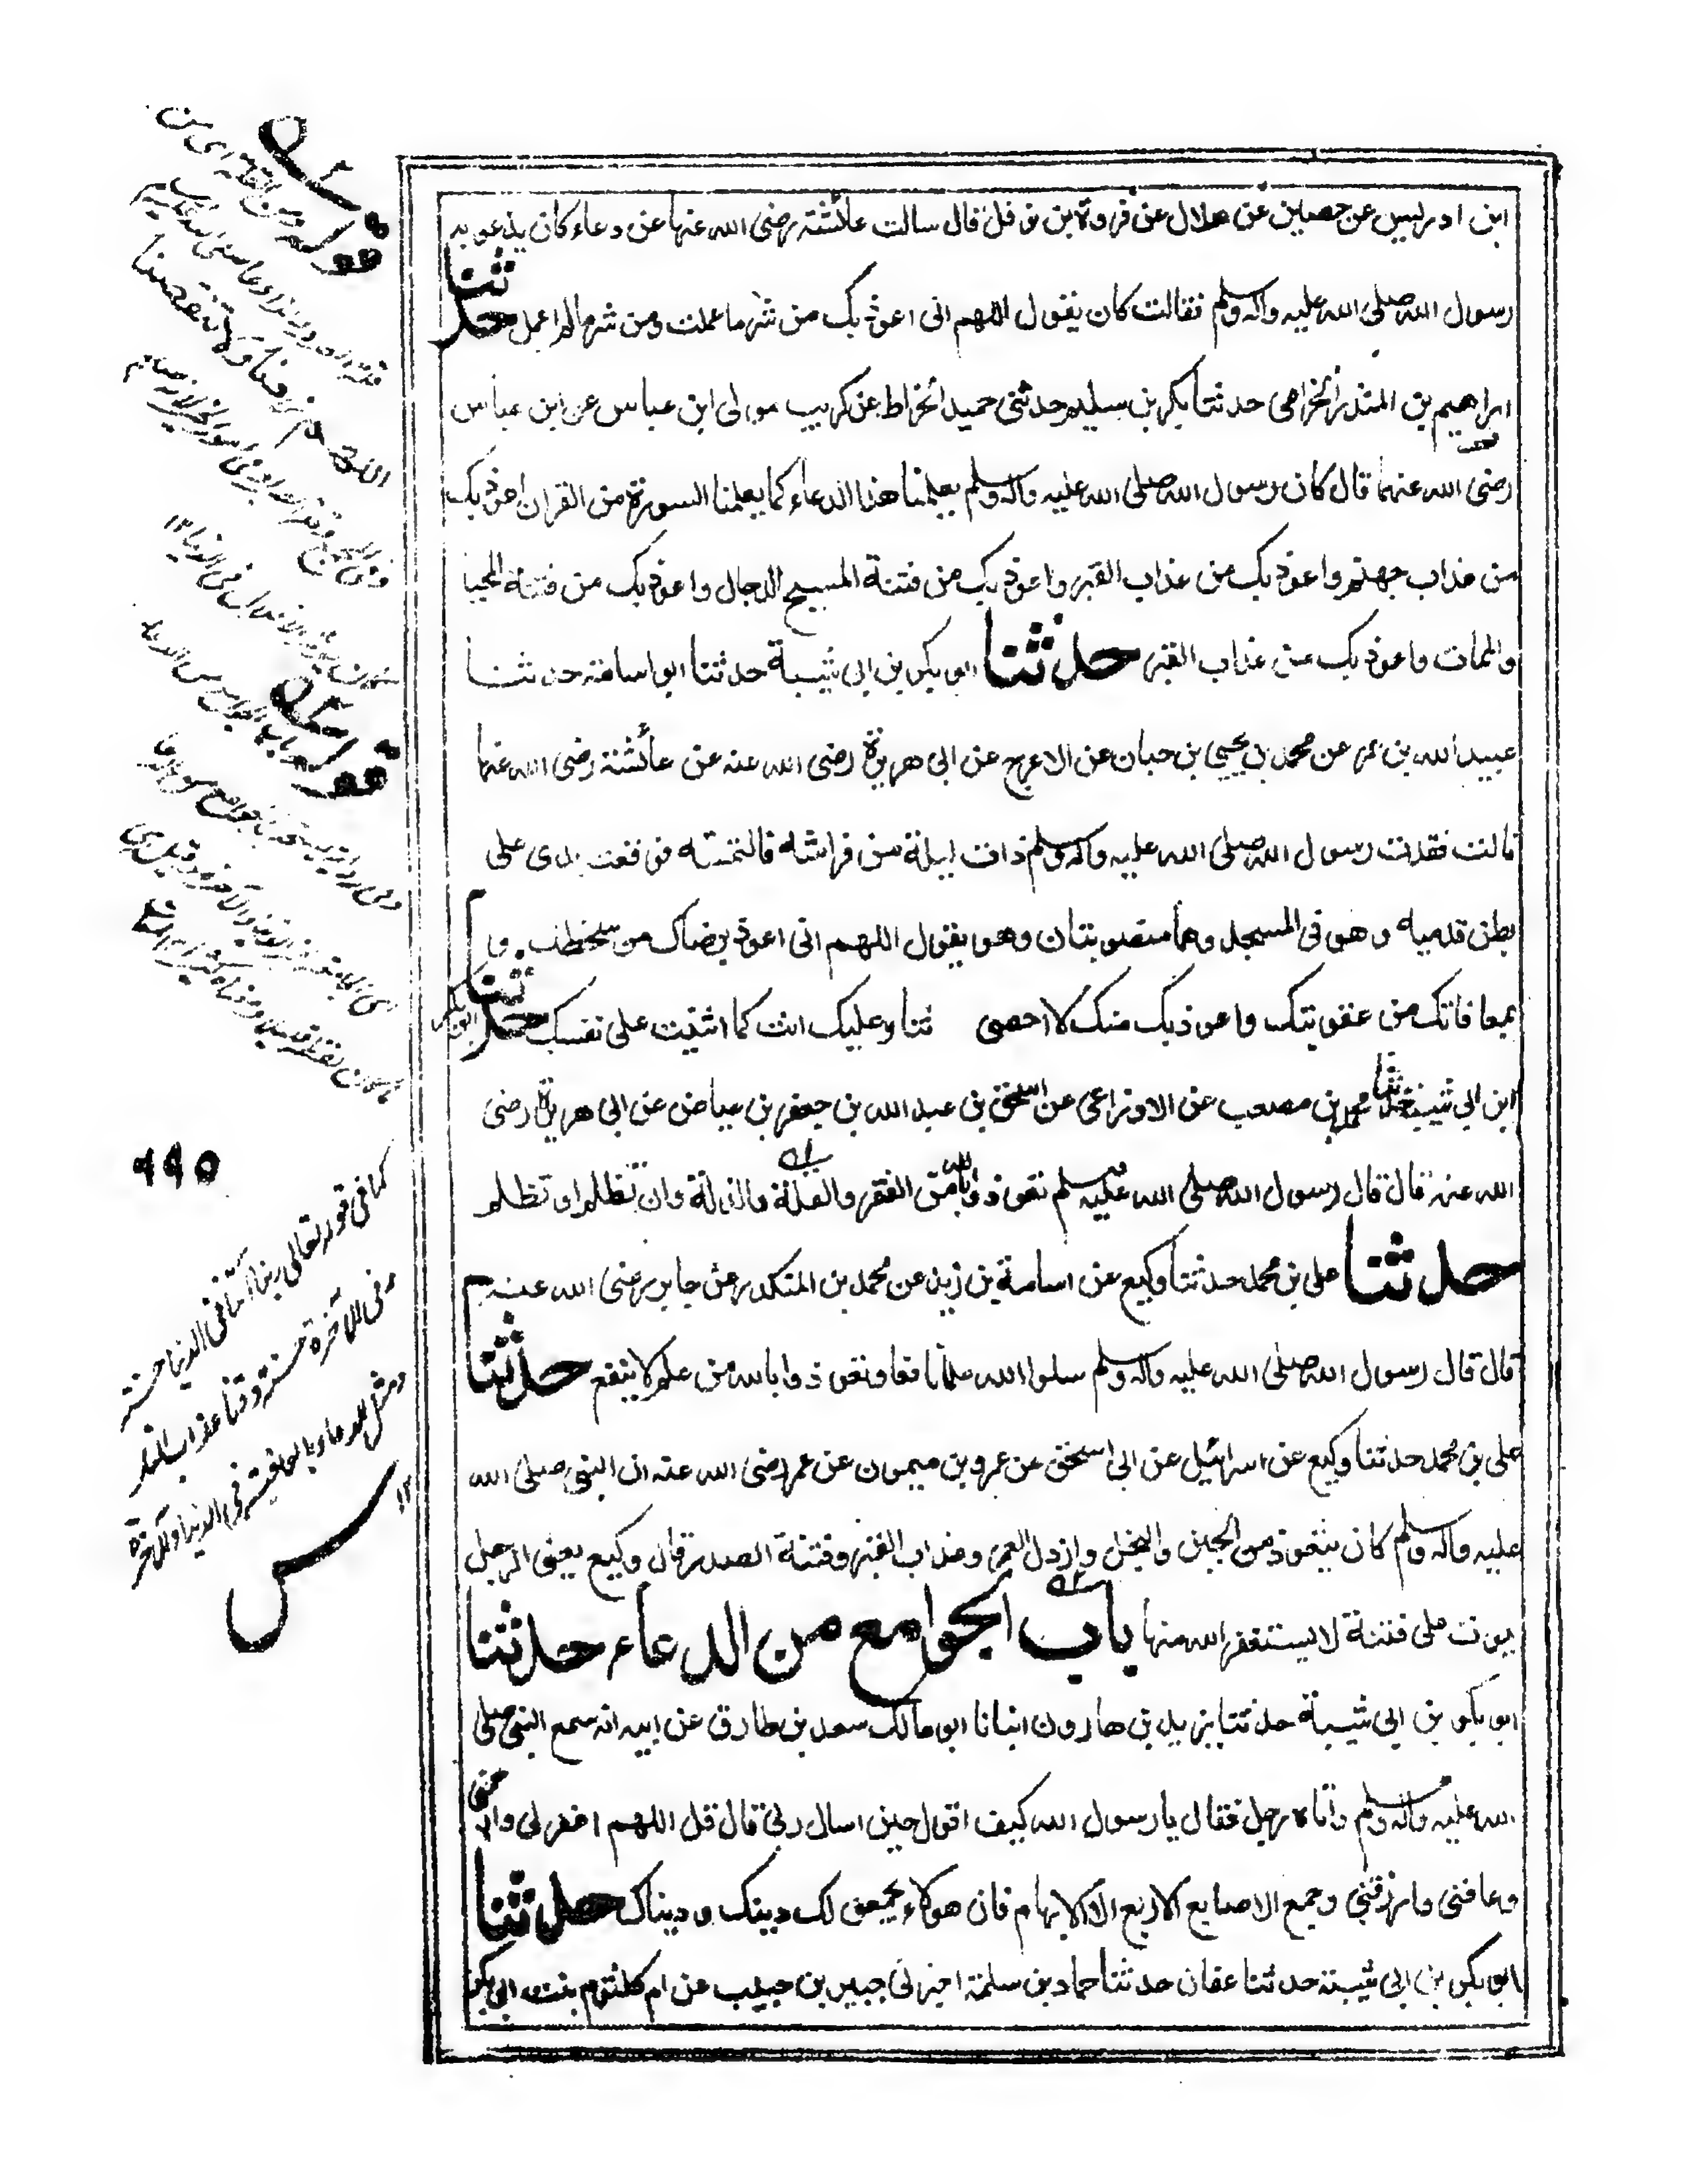 ابن ادريس عن حصين عن هلال عن فروة بن نوفل قال سالت عائشة رضى الله عنها عن دعاء كان يدعو به
رسول الله صلى الله عليه واله وسلم فقالت كان يقول اللهم انى اعوذ بك من شر ما عملت ومن شر مالم اعمل حدثنا
ابراهيم بن المنذر الخزامى حدثنا بكر بن سليم حدثنى حميد الخراط عن كريب مولى ابن عباس عن ابن عباس
رضى الله عنهما قال كان رسول الله صلى الله عليه واله وسلم يعلمنا هذا الدعاء كما يعلمنا السورة من القران اعوذ بك
من عذاب جهنم واعوذ بك من عذاب القبر واعوذ بك من فتنة المسيح الدجال واعوذ بك من فتنة المحيا
والممات واعوذ بك من عذاب القبر حدثنا ابو بكر بن ابى شيبة حدثنا ابو اسامة حدثنا
عبيد الله بن عمر عن محمد بن يحيى بن حبان عن الاعرج عن ابى هريرة رضى الله عنه عن عائشة رضى الله عنها
قالت فقدت رسول الله صلى الله عليه واله وسلم ذات ليلة من فراشه فالتمسته فوقعت يدى على
بطن قدميه وهو فى المسجد وهما منصوبتان وهو يقول اللهم انى اعوذ برضاك من سخطك و
بمعافاتك من عقوبتك واعوذ بك منك لا احصى ثناء عليك انت كما اثنيت على نفسك حدثنا ابو بكر
ابن ابى شيبة حدثنا محمد بن مصعب عن الاوزاعى عن اسحق بن عبد الله بن جعفر بن عياض عن ابى هريرة رضى
الله عنه قال قال رسول الله صلى الله عليه وسلم تعوذوا بالله من الفقر والقلة والذلة وان تظلم او تظلم
حدثنا على بن محمد حدثنا وكيع عن اسامة بن زيد عن محمد بن المنكدر عن جابر رضى الله عنه
قال قال رسول الله صلى الله عليه واله وسلم سلوا الله علما نافعا وتعوذوا بالله من علم لا ينفع حدثنا
على بن محمد حدثنا وكيع عن اسرائيل عن ابى اسحق عن عمرو بن ميمون عن عمر رضى الله عنه ان النبى صلى الله
عليه واله وسلم كان يتعوذ من الجبن والبخل وارذل العمر وعذاب القبر وفتنة الصدر قال وكيع يعنى الرجل
يموت على فتنة لا يستغفر الله منها باب الجوامع من الدعاء حدثنا
ابو بكر بن ابى شيبة حدثنا يزيد بن هارون انبانا ابو مالك سعد بن طارق عن ابيه انه سمع النبى صلى
الله عليه واله وسلم واتاه رجل فقال يا رسول الله كيف اقول حين اسال ربى قال قل اللهم اغفر لى وارحمنى
وعافنى وارزقنى وجمع الاصابع الاربع الا الابهام فان هولاء يجمعن لك دينك ودنياك حدثنا
ابو بكر بن ابى شيبة حدثنا عفان حدثنا حماد بن سلمة اخبرنى جبير بن حبيب عن ام كلثوم بنت ابى بكر
قوله
قوله
٩٩٥
كما فى قوله تعالى ربنا آتنا فى الدنيا حسنة
وفى الآخرة حسنة وقنا عذاب النار
ومثل الدعاء بالعافية فى الدنيا والآخرة
١٢